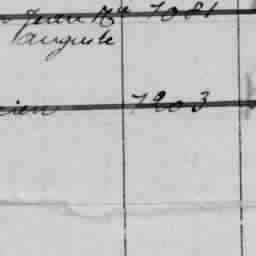 Jean Bte 7081
Auguste
cien 7203